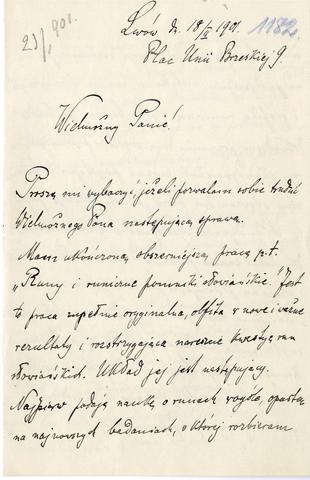 1182.
23/1 901.
Lwów d. 18/II 1901.
Plac Unii Brzeskiej 9.
Wielmożny Panie!
Proszę mi wybaczyć, jeżeli pozwalam sobie trudzić
Wielmożnego Pana następującą sprawą.
Mam ukończoną obszerniejszą pracę p.t.
„Runy i runiczne pomniki słowiańskie." Jest
to praca zupełnie oryginalna, obfita w nowe i ważne
rezultaty i rozstrzygająca nareszcie kwestyę run
słowiańskich. Układ jej jest następujący.
Najpierw podaję naukę o runach wogóle, opartą
na najnowszych badaniach, o której rozbieram